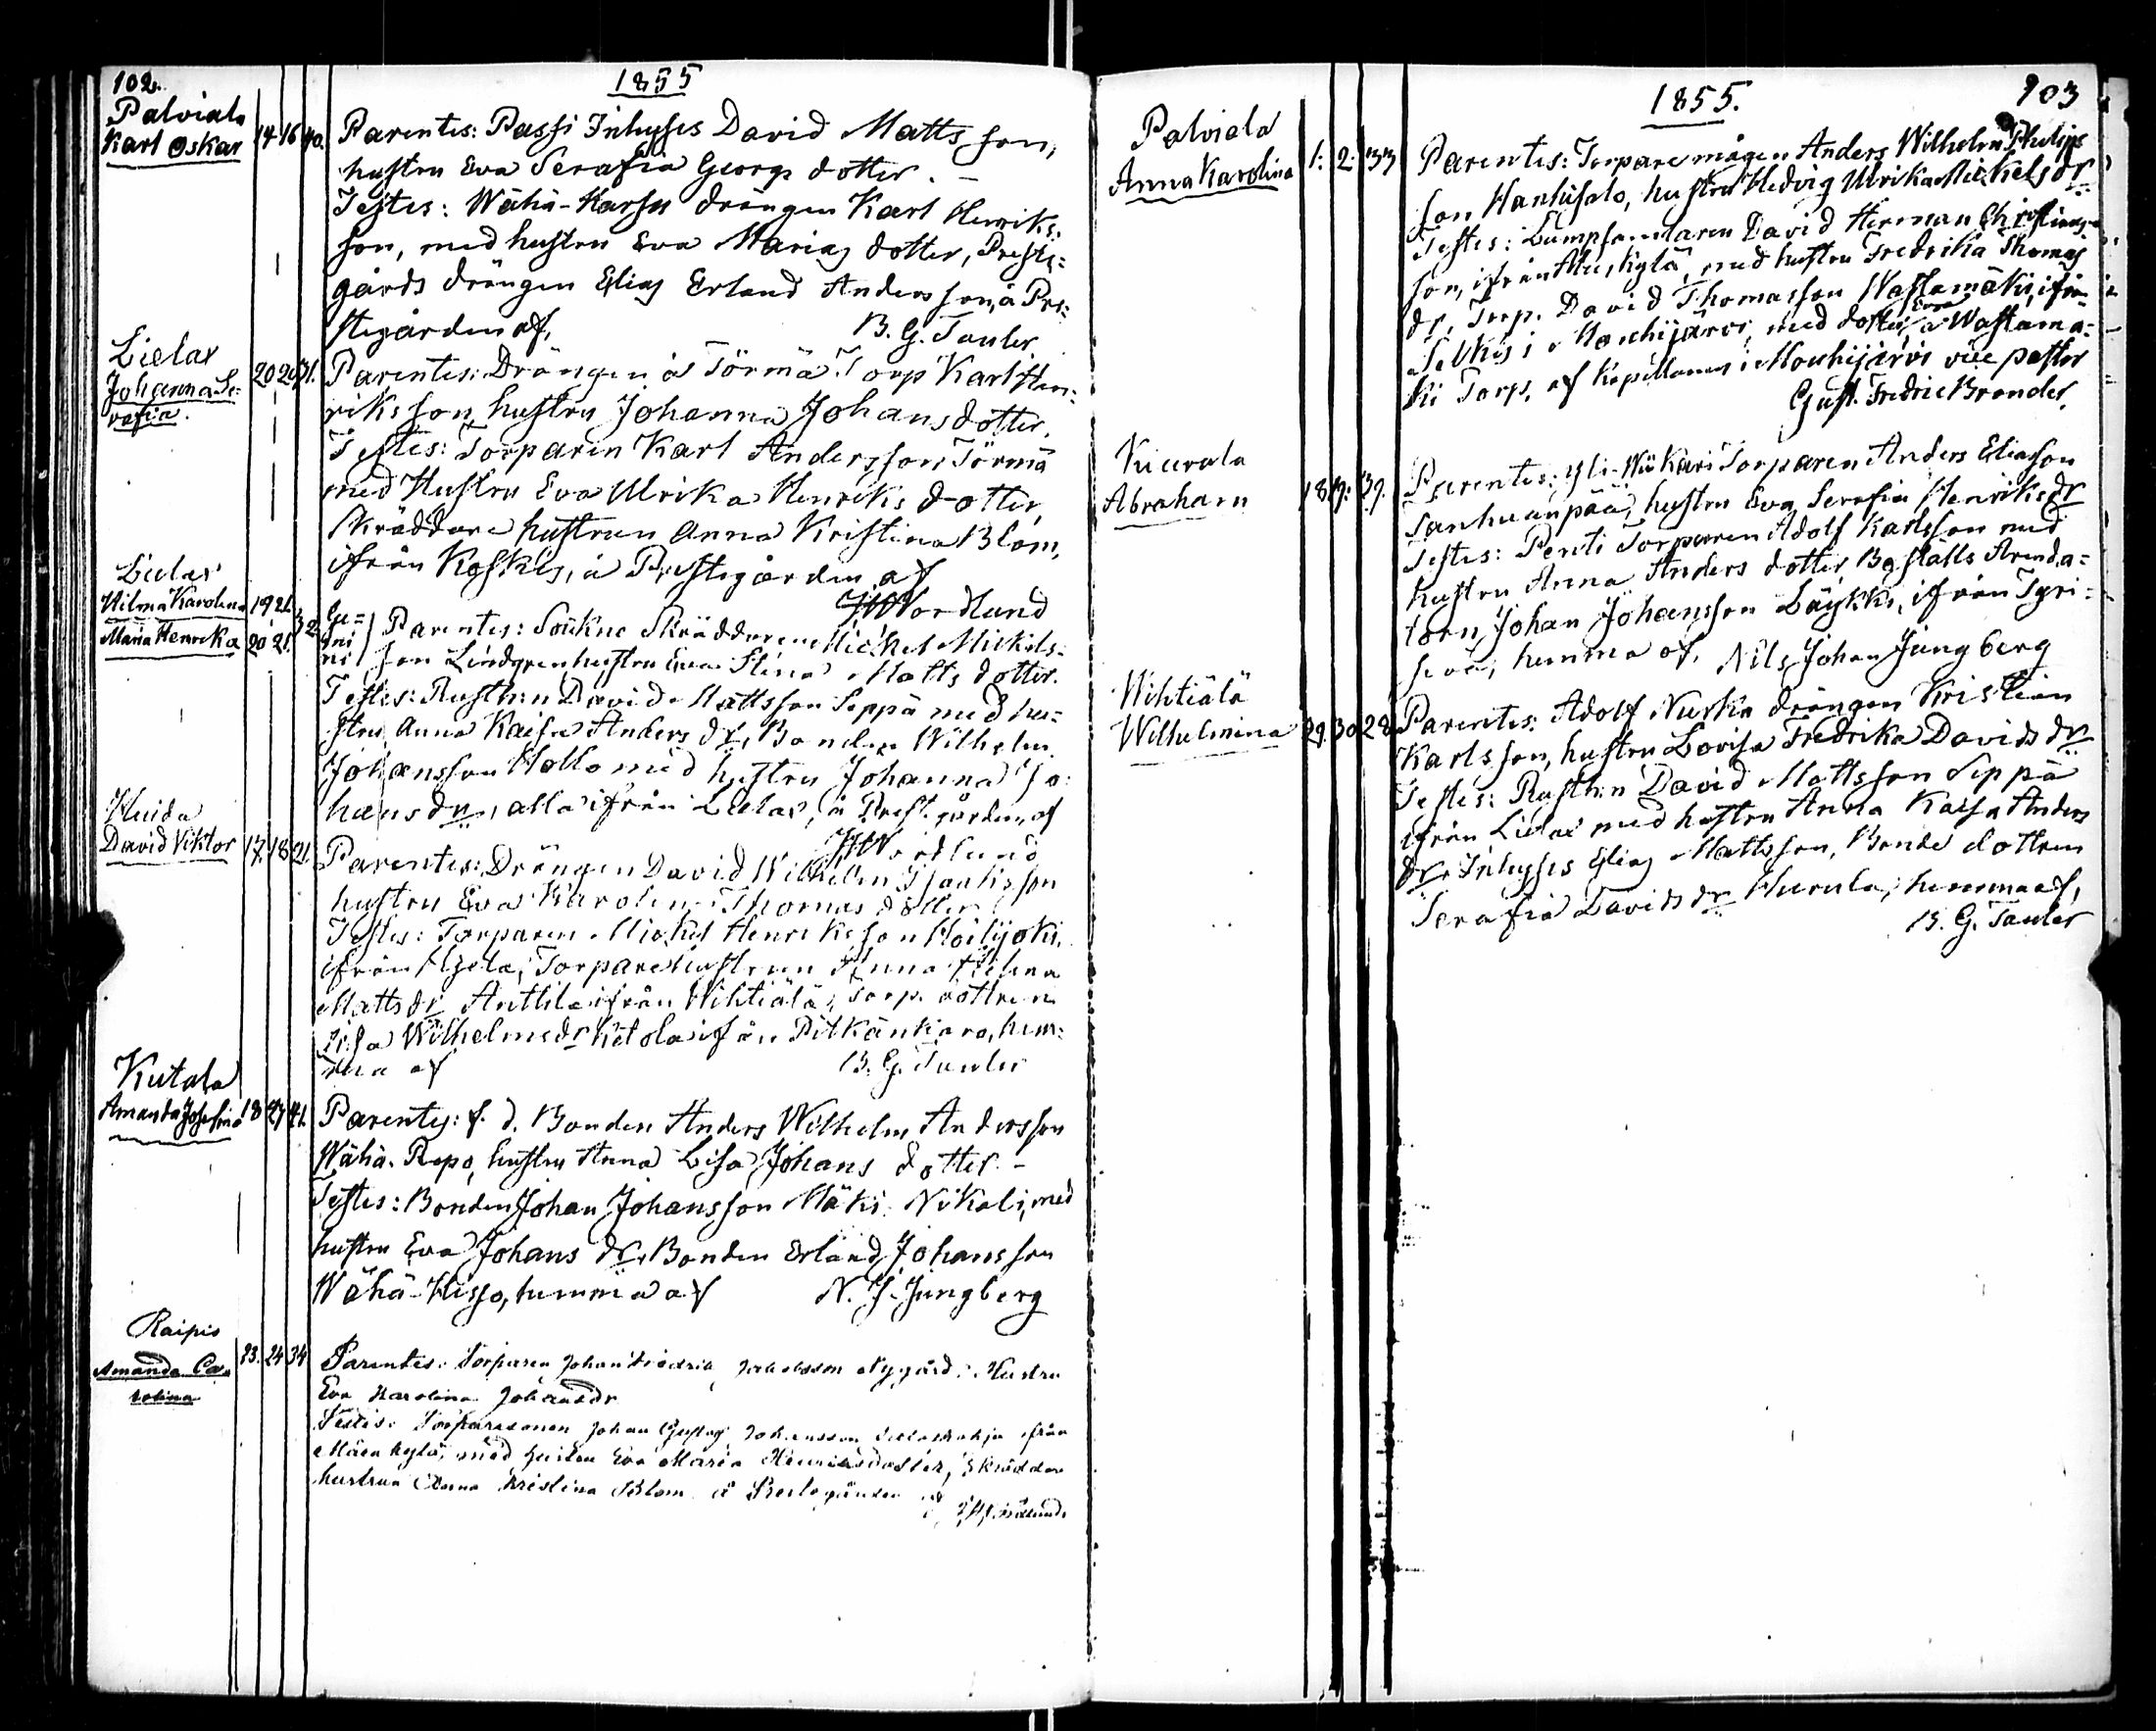 102.
1855
Palviala
Karl Oskar 14 16 40.
Parentes: Passi Inhyses David Matts son,
hustru Eva Serafia Georgs dotter. –
Testes: Wähä-Karsu drängen Karl Henriks-
son, med hustru Eva Marias dotter, Preste-
gårds drängen Elias Erland Andersson, å Pre-
stegården af,
B. G. Tauler
Lielax
Johanna Se-
rafia.
20 21 31.
Parentes: Drängen å Törmä Torp Karl Hen-
riksson, hustru Johanna Johansdotter.
Testes: Torparen Karl Andersson Törmä
med Hustru Eva Ulrika Henriks dotter,
Skräddare hustrun Anna Kristina Blom,
ifrån Koskis, å Prestegården af
Nordlund
Lielax
Hilma Karolina 19 21.
Maria Henrika 20 21. 32
Ge-
mi
ni
Parentes: Sockne Skräddaren Michel Mickels-
son Lindgren, hustru Eva Stina Matts dotter.
Testes: Rusth:n David Mattsson Seppä med hu-
stru Anna Kaisa Anders dr, Bonden Wilhelm
Johansson Hollo med hustru Johanna Jo-
hansdr, alla ifrån Lielax, å Prest. gården, af
Nordlund
Huida
David Viktor 17. 18 21.
Parentes: Drängen David Wilhelm Isaaksson
hustru Eva Karolina Thomas dotter
Testes: Torparen Mickel Henriksson
ifrån Torpare hustrun Anna Helena
Mattsdr Anttila ifrån Wihtiälä, Torp. dottren
Lisa Wilhelmsdr Ketola ifrån Pitkänkara, hem-
ma af
B. G. Tauler
Kutala
Amanda Josefina 18 21 41.
Parentes: f. d. Bonden Anders Wilhelm Andersson
Wähä-Repo, hustru Anna Lisa Johans dotter –
Testes: Bonden Johan Johansson Mäki Nikali, med
hustru Eva Johans dr, Bonden Erland Johansson
Wähä-Hisso, hemma af
N. J. Jungberg
Raipis
Amanda Ca-
rolina
23. 24 34
Parentes: Torparen Johan Fredrik Jakobsson Nygård, Hustru
Eva Karolina Johansdr
Testes: Torparesonen Johan Gustaf Johansson ifrån
Mäenkylä, med hustru Eva Maria Henriksdotter, Skräddar
hustrun Anna Kristina Blom å Prestegården af
Nordlund
1855.
103
Palviala
Anna Karolina 1. 2. 33
Parentes: Torpare mågen Anders Wilhelm Philips
son Hanhisalo, hustru Hedvig Ulrika Mickelsdr
Testes: Lumpsamlaren David Herman Christians-
son, ifrån kylä, med hustru Fredrika Thomas
dr, Torp. David Thomasson Wastamäki, ifrån
Selkis i Mouhijärvi, med dotter Eva å Wastamä-
ki Torp, af Kapellanen i Mouhijärvi vice pastor
Gust. Fredric Brander.
Kiurala
Abraham 18 19. 39.
Parentes: Yli-Wikari Torparen Anders Eliasson
Tanhuanpää, hustru Eva Serafia Henriksdr
Testes: Penti Torparen Adolf Karlsson med
hustru Anna Anders dotter, Boställs Arenda-
torn Johan Johansson Läykki, ifrån Tyri-
sevä, hemma af,
Nils Johan Jungberg
Wihtiälä
Wilhelmina 29. 30 28.
Parentes: Adolf Nurkka drängen Kristian
Karlsson, hustru Lovisa Fredrika Davids dr
Testes: Rusth:n David Mattsson Seppä
ifrån Lielax med hustru Anna Kaisa Anders
dr. Inhyses Elias Mattsson, Bonde dottren
Serafia Davids dr Hurula, hemma af,
B. G. Tauler